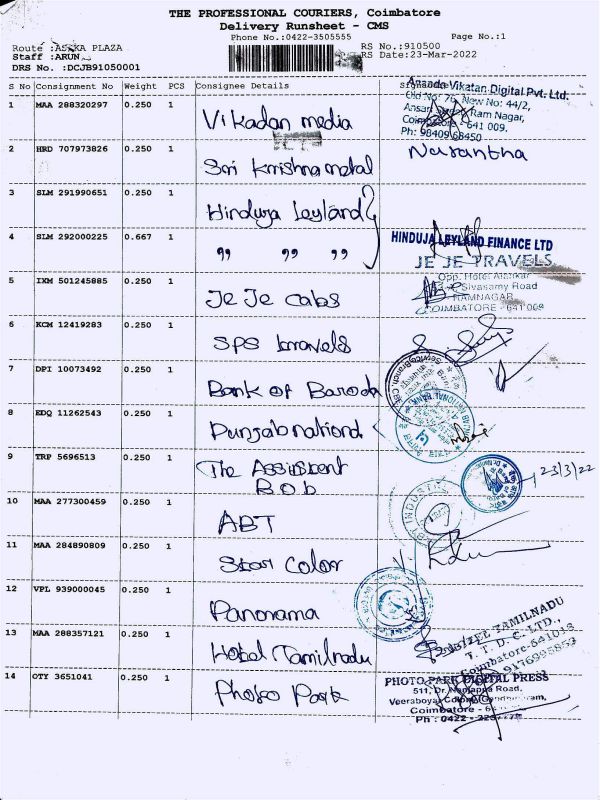 THE PROFESSIONAL COURIERS, Coimbatore
Delivery Runsheet - CMS
Phone No.:0422-3505555 Page No.:1
Route :ASKKA PLAZA RS No.:910500
Staff :ARUN RS Date:23-Mar-2022
DRS No. :DCJB91050001
S No Consignment No Weight PCS Consignee Details
1 MAA 288320297 0.250 1 Vikadan media
Ananda Vikatan Digital Pvt. Ltd.
New No: 44/2,
Ram Nagar,
641 009.
Ph: 98409 68450
2 HRD 707973826 0.250 1 Sri krrishna metal
3 SLM 291990651 0.250 1 Hinduja Leyland
4 SLM 292000225 0.667 1 " " "
HINDUJA LEYLAND FINANCE LTD
JE JE TRAVELS
Sivasamy Road
RAMNAGAR
COIMBATORE - 641 009
5 IXM 501245885 0.250 1 Je Je cabs
6 KCM 12419283 0.250 1 SPS travels
7 DPI 10073492 0.250 1 Bank of Baroda
8 EDQ 11262543 0.250 1 Punjab national
9 TRP 5696513 0.250 1 The Assistent
B.O.B
23/3/22
10 MAA 277300459 0.250 1 ABT
11 MAA 284890809 0.250 1 Star color
12 VPL 939000045 0.250 1 Panorama
13 MAA 288357121 0.250 1 Hotel Tamilnadu
TAMILNADU
T. T. D. C. LTD.,
Coimbatore-641018
14 OTY 3651041 0.250 1 Photo Park
PHOTO PARK DIGITAL PRESS
511, Dr. Nanjappa Road,
Veeraboyar Colony
Coimbatore -
Ph : 0422 -